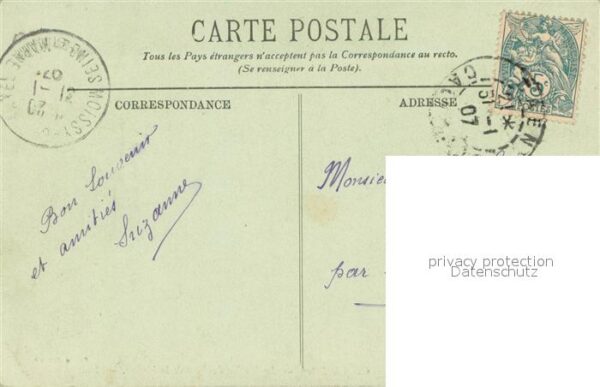 CARTE POSTALE
Tous les Pays étrangers n'acceptent pas la Correspondance au recto.
(Se renseigner à la Poste).
CORRESPONDANCE
ADRESSE
Bon Souvenir
et amitiés
Suzanne
Monsieu
par
privacy protection
Datenschutz
SEINE ET MARNE
MOISSY
07